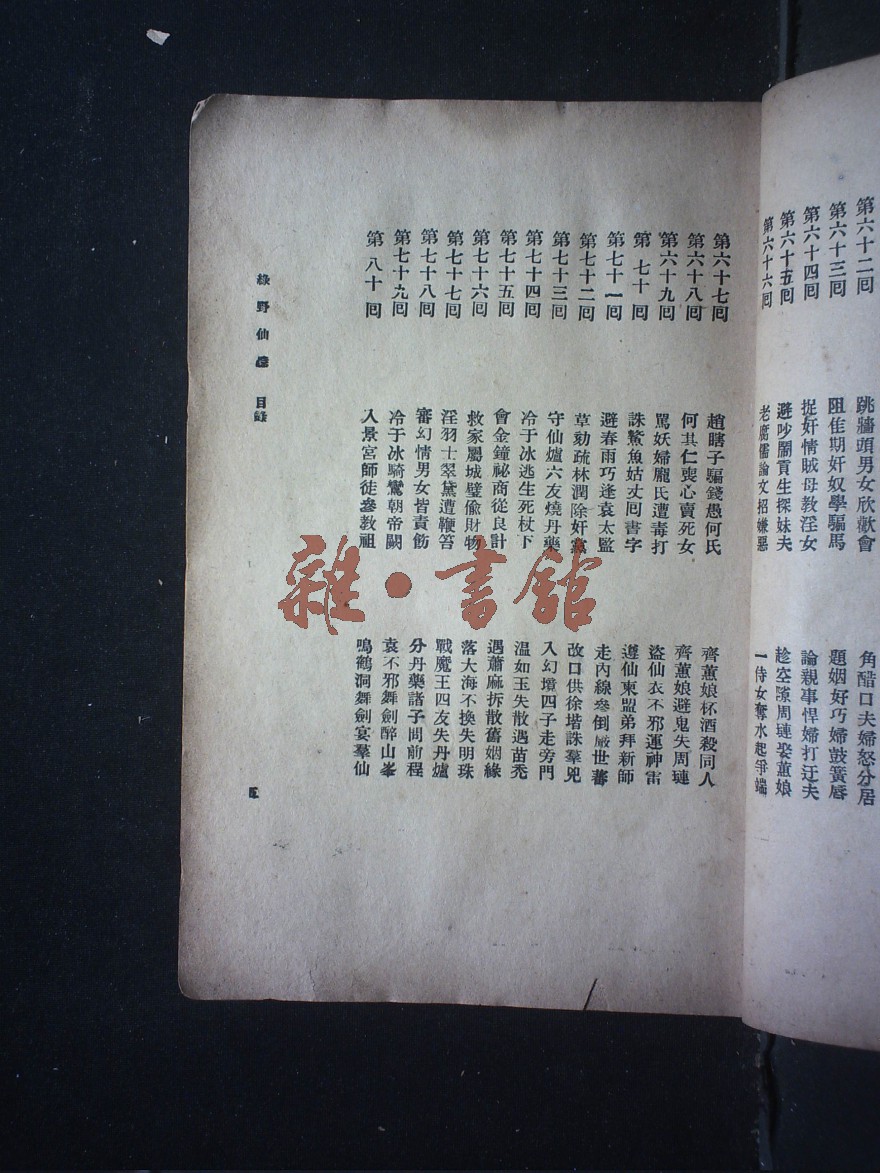 第六十二囘 跳牆頭男女欣歡會 角醋口夫婦怒分居
第六十三囘 阻佳期奸奴學騙馬 題姻好巧婦鼓簧唇
第六十四囘 捉奸情賊母教淫女 論親事悍婦打迂夫
第六十五囘 避吵鬧貢生探妹夫 趁空隙周璉娶蕙娘
第六十六囘 老腐儒論文招嫌惡 一侍女奪水起爭端
第六十七囘 趙瞎子騙錢愚何氏 齊蕙娘杯酒殺同人
第六十八囘 何其仁喪心賣死女 齊蕙娘避鬼失周璉
第六十九囘 罵妖婦龐氏遭毒打 盜仙衣不邪運神雷
第七十囘 誅鰲魚姑丈囘書字 遵仙柬盟弟拜新師
第七十一囘 避春雨巧逢袁太監 走內線參倒嚴世蕃
第七十二囘 草劾疏林潤除奸黨 改口供徐堦誅羣兇
第七十三囘 守仙爐六友燒丹藥 入幻境四子走旁門
第七十四囘 冷于冰逃生死杖下 溫如玉失散遇苗禿
第七十五囘 會金鐘祕商從良計 遇蕭麻拆散舊姻緣
第七十六囘 救家屬城璧偷財物 落大海不換失明珠
第七十七囘 淫羽士翠黛遭鞭笞 戰魔王四友失丹爐
第七十八囘 審幻情男女皆責飭 分丹藥諸子問前程
第七十九囘 冷于冰騎鸞朝帝闕 袁不邪舞劍醉山峯
第八十囘 入景宮師徒參教祖 鳴鶴洞舞劍宴羣仙
綠野仙蹤 目錄
五
雜·書館